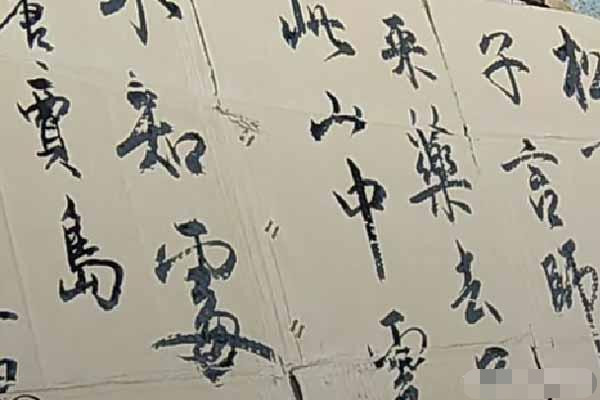 松
子言師
采藥去
此山中雲
不知處
唐賈島